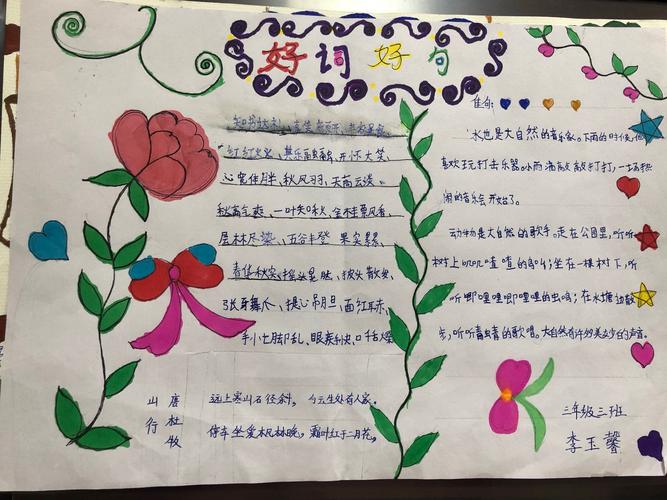 好词好句
红红火火、其乐融融、开怀大笑
心宽体胖、秋风习习、天高云淡、
秋高气爽、一叶知秋、金桂飘香、
层林尽染、五谷丰登、果实累累、
春佳秋实、摇头晃脑、披头散发、
张牙舞爪、提心吊胆、面红耳赤、
手忙脚乱、眼疾手快、口干舌燥
山行
唐 杜牧
远上寒山石径斜,白云生处有人家。
停车坐爱枫林晚,霜叶红于二月花。
佳句:
水也是大自然的音乐家。下雨的时候,他
喜欢玩打击乐器。小雨滴敲敲打打,一场热
闹的音乐会开始了。
动物是大自然的歌手。走在公园里,听听
树上叽叽喳喳的鸟叫;坐在一棵树下,听
听唧哩哩唧哩哩的虫鸣;在水塘边散
步,听听青蛙的歌唱。大自然有许多美妙的声音。
三年级三班
李玉馨